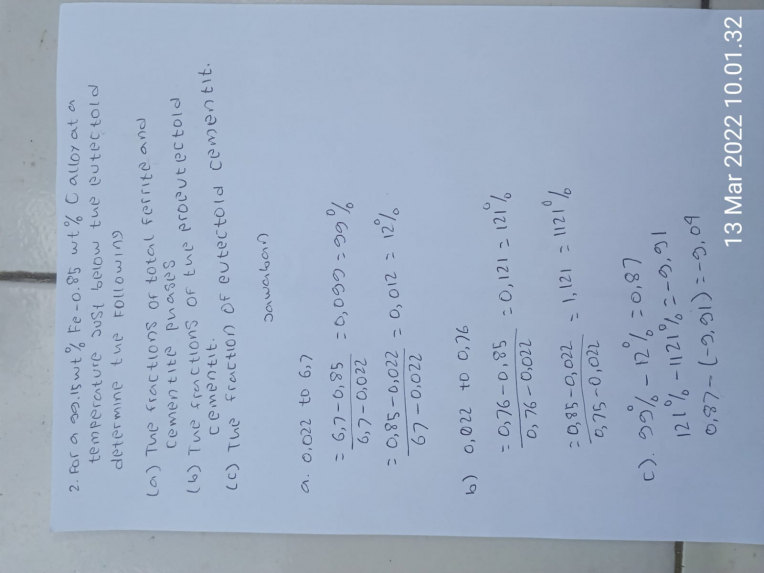 2. For a 99.15wt% Fe-0.85 wt% C alloy at a
temperature Just below the eutectoid
determine the following
(a) The fractions of total ferrite and
cementite phases
(b) The fractions of the proeutectoid
cementit.
(c) The fraction of eutectoid cementit.
Jawaban
a. 0,022 to 6,7
= 6,7-0,85 / 6,7-0,022 = 0,099 = 99%
= 0,85-0,022 / 67-0,022 = 0,012 = 12%
b) 0,022 to 0,76
= 0,76-0,85 / 0,76-0,022 = 0,121 = 121%
= 0,85-0,022 / 0,75-0,022 = 1,121 = 1121%
c). 99% - 12% = 0,87
121% - 1121% = -9,91
0,87-(-9,91) = -9,04
13 Mar 2022 10.01.32